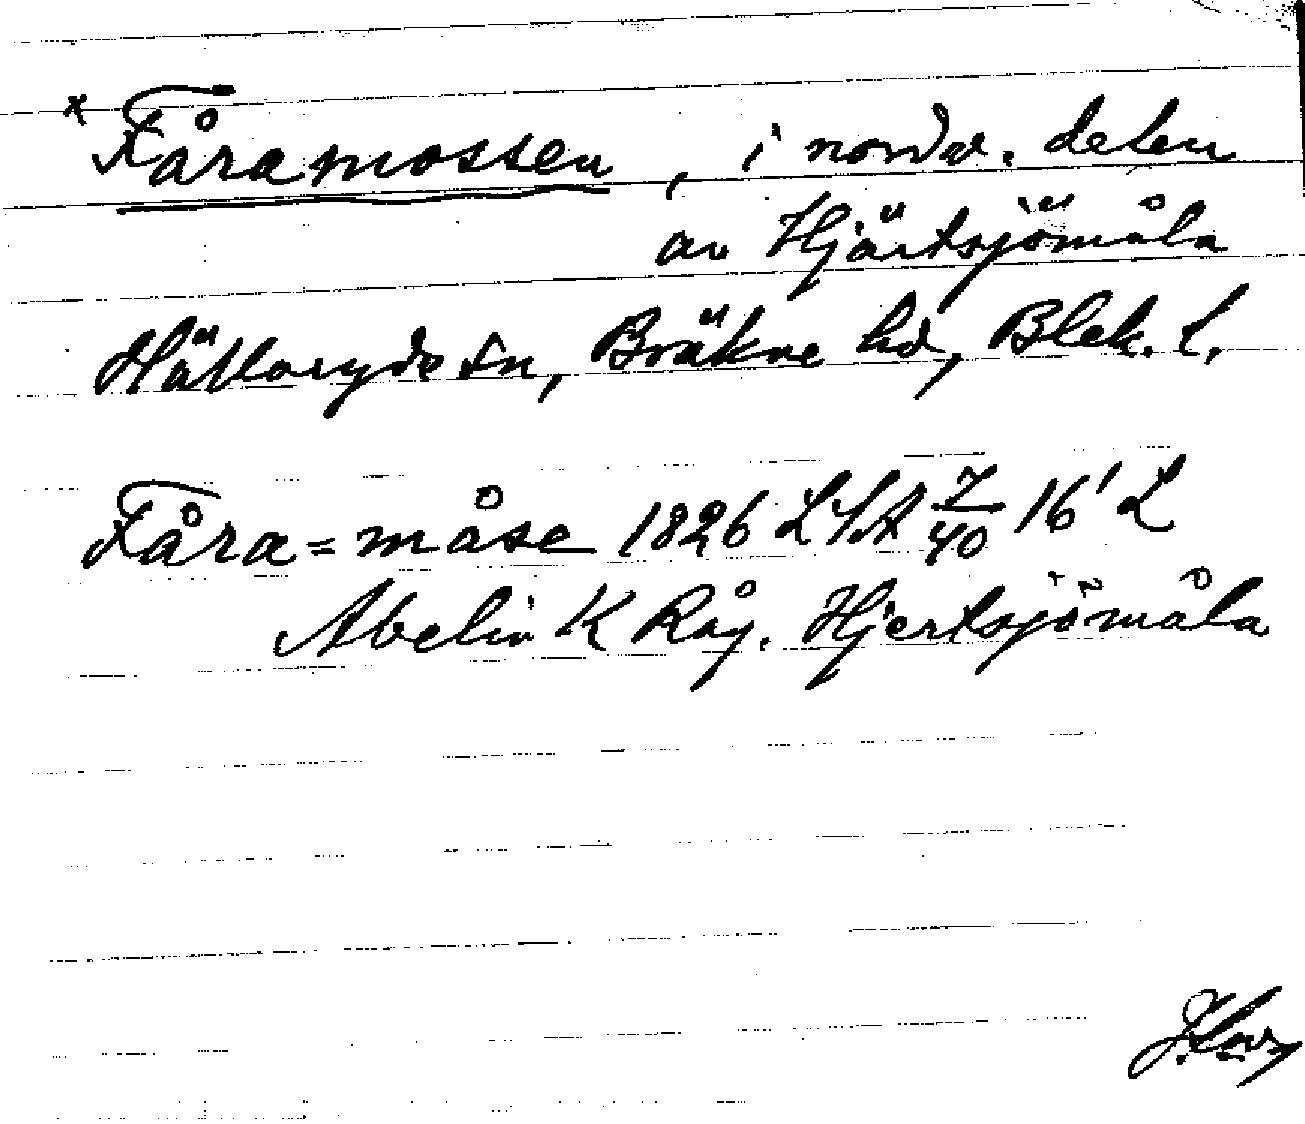 x Fåramossen, i nordv. delen
av Hjärtsjömåla
Hällaryds sn, Bräkne hd, Blek. l.
Fåra=måse 1826 LSA 7/40 16' L
Abelin K Råg. Hjertsjömåla